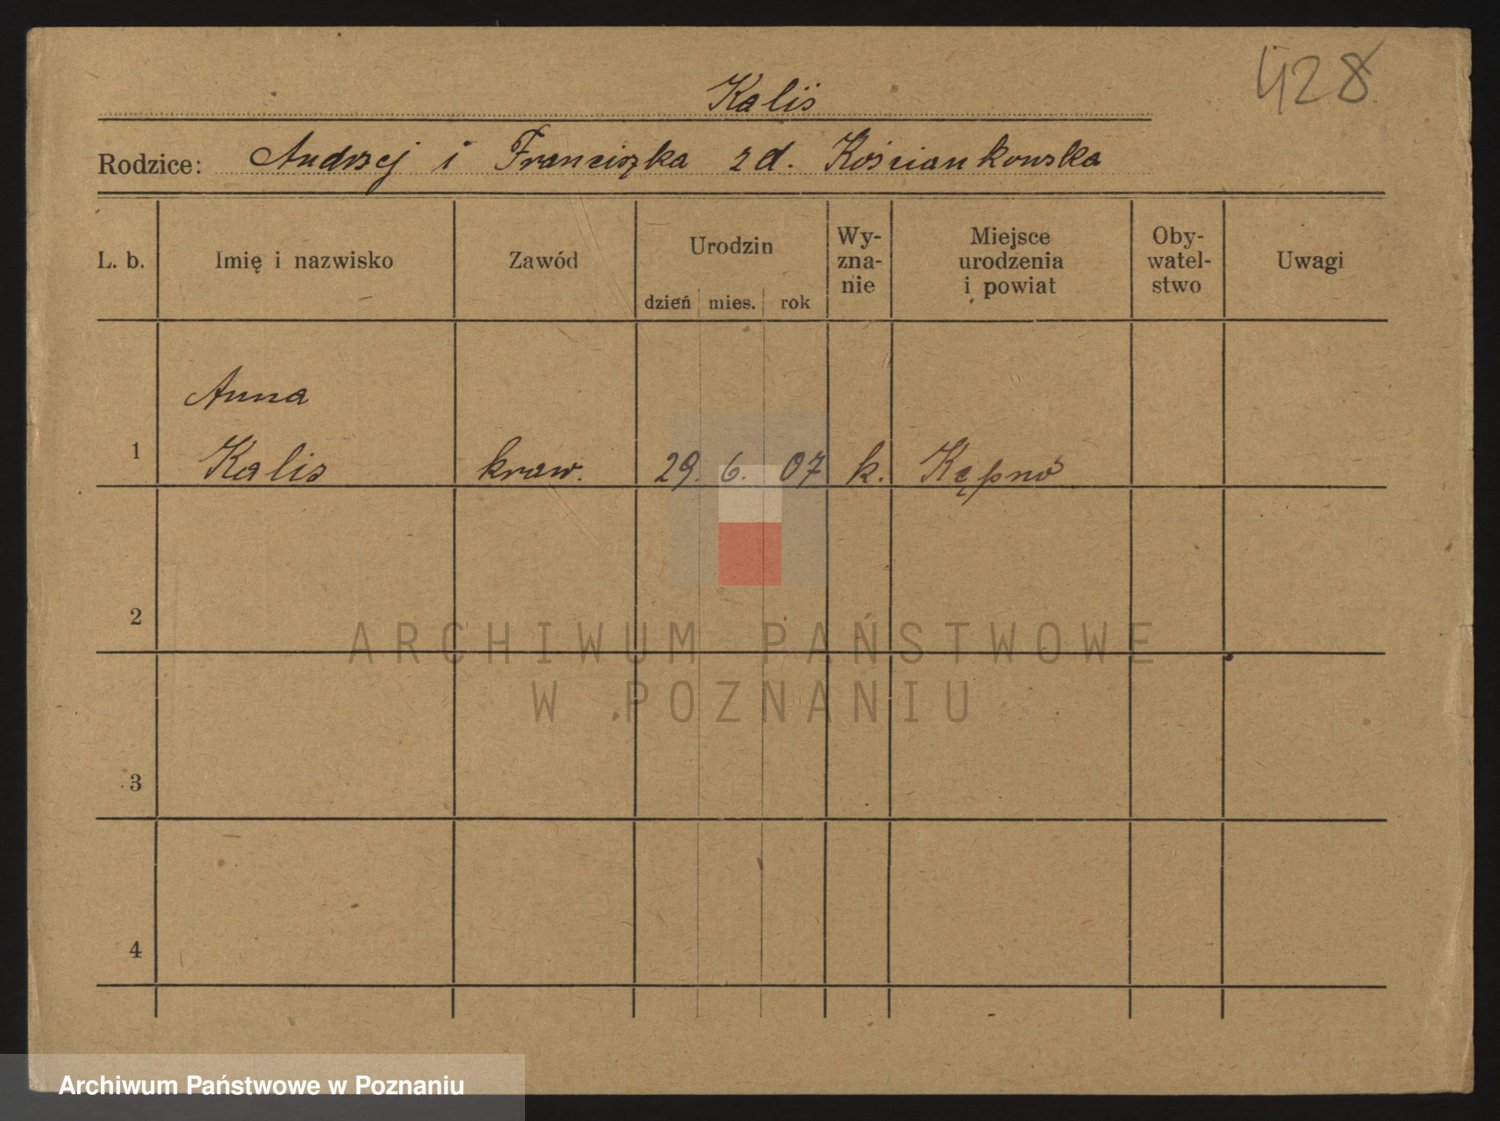 428
Kaliś
Rodzice: Andrzej i Franciszka zd. Kościankowska
L. b. Imię i nazwisko Zawód Urodzin dzień mies. rok Wy-zna-nie Miejsce urodzenia i powiat Oby-watel-stwo Uwagi
Anna
1 Kalis kraw. 29. 6. 07 k. Kępno
2
ARCHIWUM PAŃSTWOWE
W POZNANIU
3
4
Archiwum Państwowe w Poznaniu